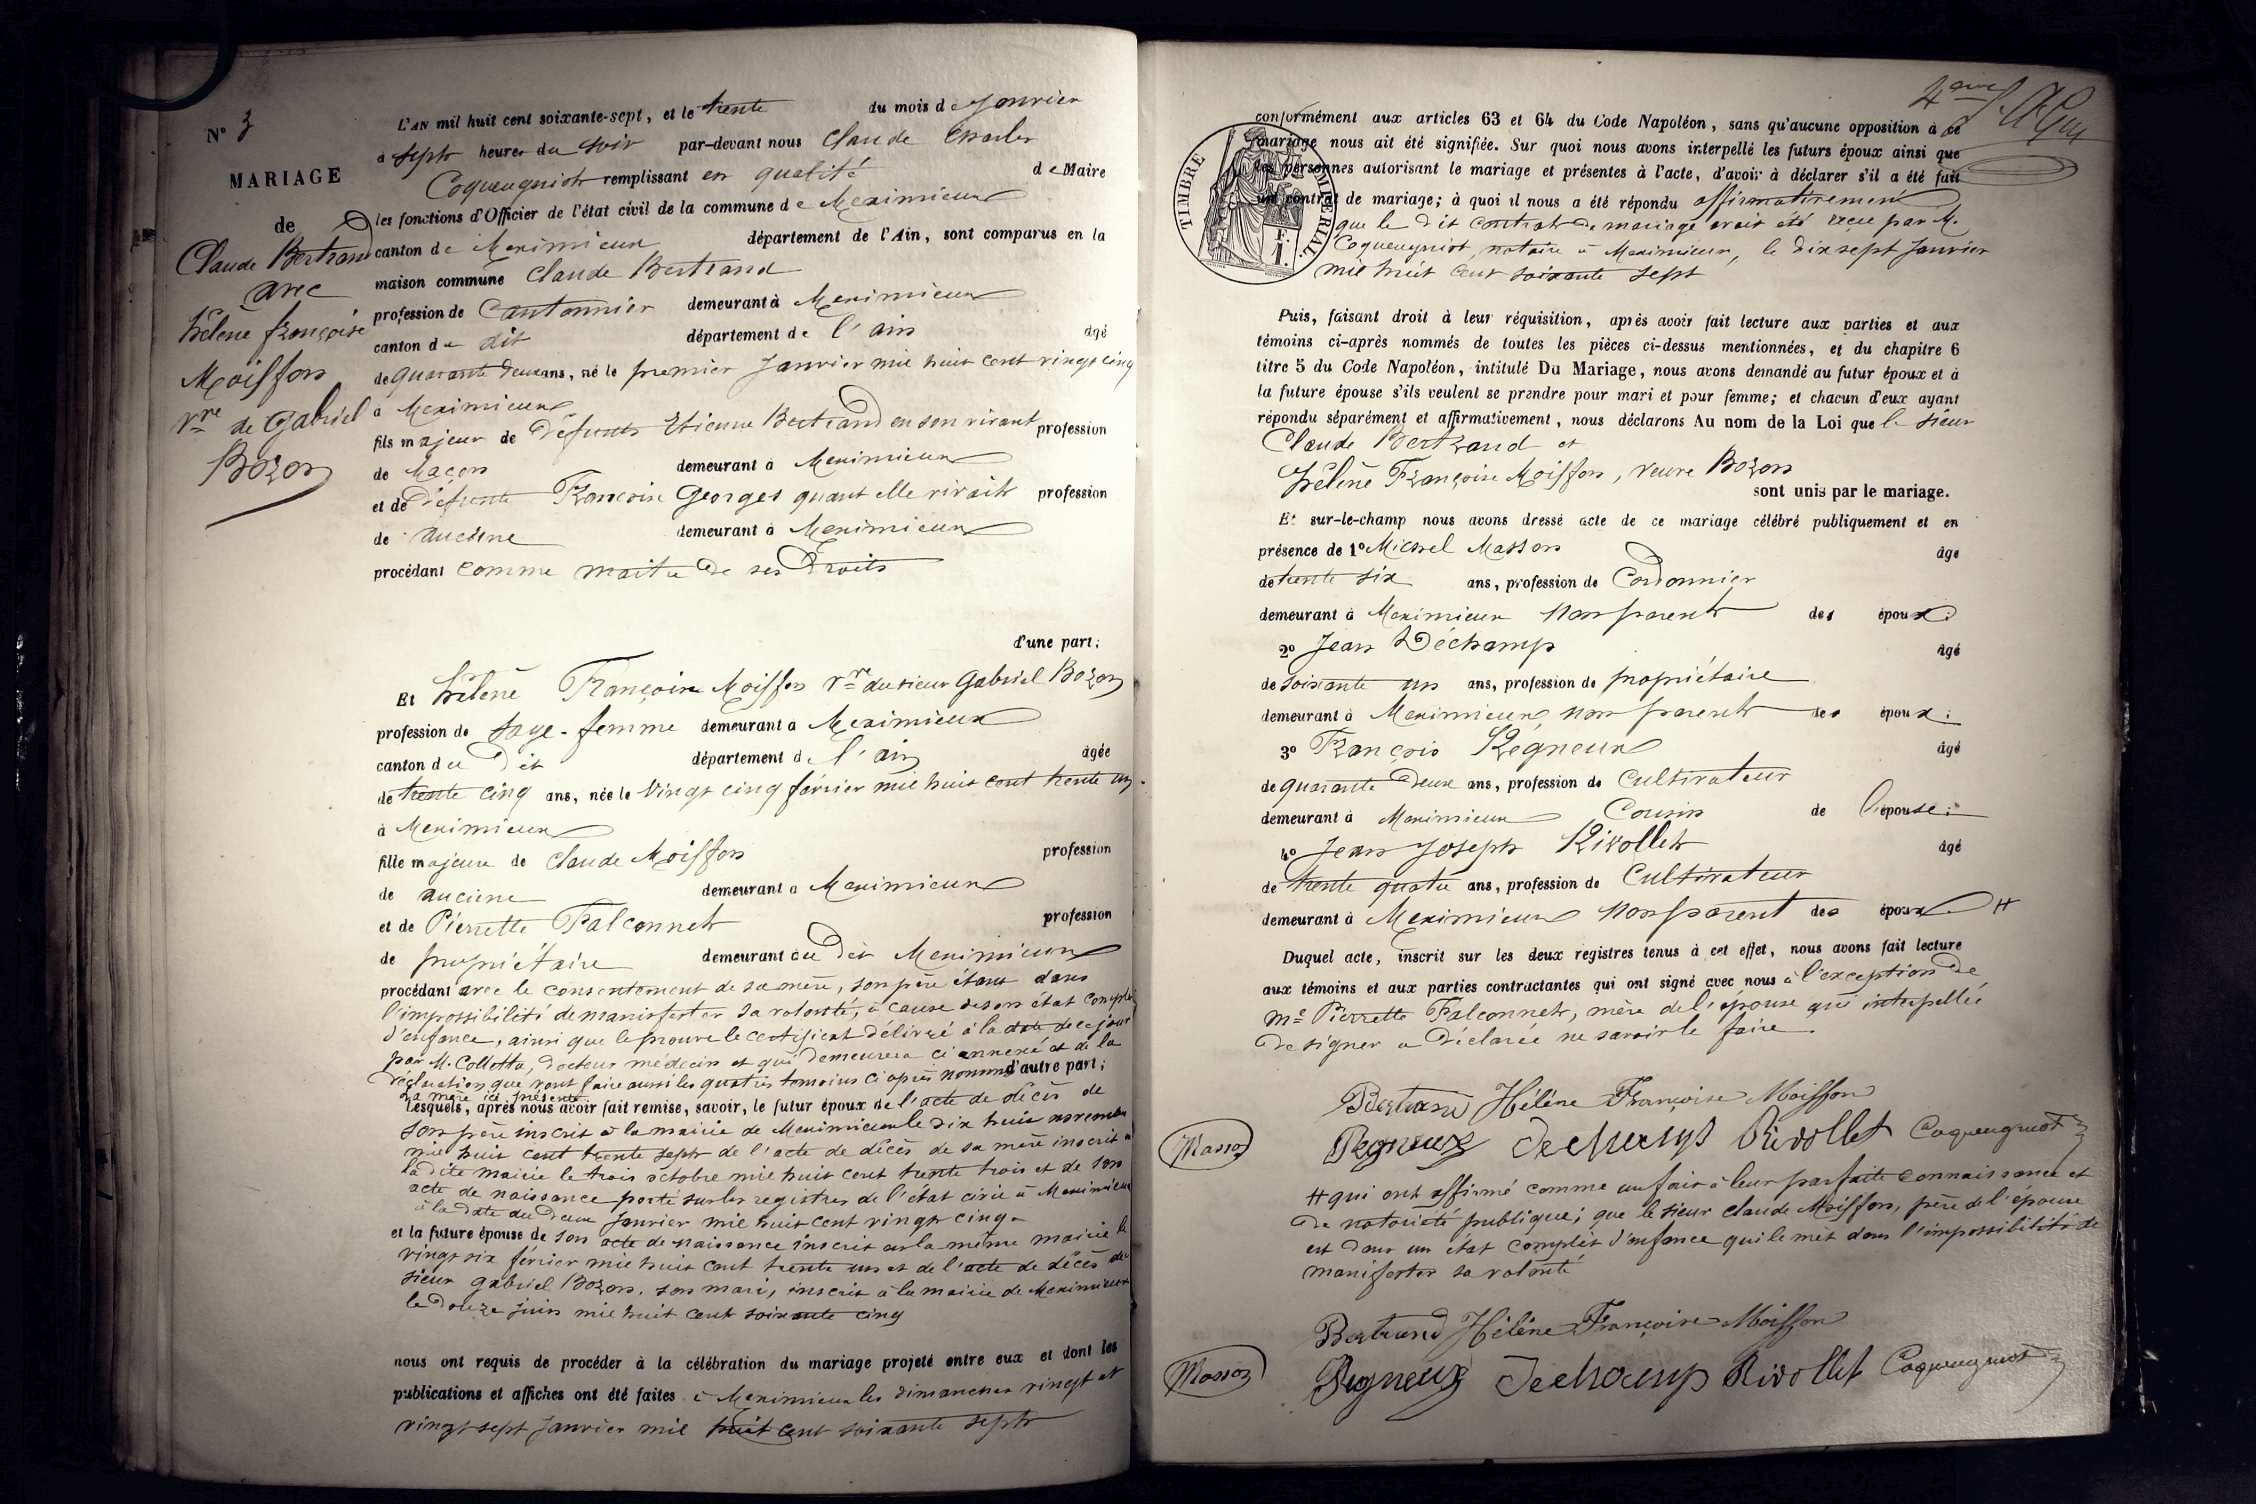 N° 3
MARIAGE
de
Claude Bertrand
avec
hélène françoise
Moiffon
vve de Gabriel
Bozon
L'AN mil huit cent soixante-sept, et le trente du mois de Janvier
à sept heures du soir par-devant nous Claude Charles
Coqueugniot remplissant en qualité de Maire
les fonctions d'Officier de l'état civil de la commune de Meximieux
canton de Meximieux département de l'Ain, sont comparus en la
maison commune Claude Bertrand
profession de Cantonnier demeurant à Meximieux
canton du dit département de l'ain âgé
de quarante deux ans, né le premier Janvier mil huit cent vingt cinq
à Meximieux
fils majeur de défunts Etienne Bertrand en son vivant profession
de Maçon demeurant à Meximieux
et de défunte Françoise Georges quant elle vivait profession
de aucune demeurant à Meximieux
procédant comme maitre de ses Droits
d'une part;
Et hélène Françoise Moiffon vve du sieur Gabriel Bozon
profession de sage-femme demeurant à Meximieux
canton du dit département de l'ain âgée
de trente cinq ans, née le vingt cinq février mil huit cent trente un
à Meximieux
fille majeure de Claude Moiffon profession
de aucune demeurant à Meximieux
et de Pierrette Falconnet profession
de propriétaire demeurant au dit Meximieux
procédant avec le consentement de sa mère, son père étant dans
l'impossibilité de manisfester sa volonté, à cause de son état complet
d'enfance, ainsi que le prouve le certificat délivré à la date de ce jour
par M. Colletta, docteur médecin et qui demeurera ci annexé et de la
déclaration que vont faire aussi les quatres temoins ci après nommés d'autre part;
La mère ici présente
Lesquels, après nous avoir fait remise, savoir, le futur époux de l'acte de décès de
son père inscrit à la mairie de Meximieux le dix huit novembre
mil huit cent trente sept de l'acte de décès de sa mère inscrit à
la dite mairie le trois octobre mil huit cent trente trois et de son
acte de naissance porté sur les registres de l'état civil à Meximieux
à la date du deux Janvier mil huit cent vingt cinq -
et la future épouse de son acte de naissance inscrit à la même mairie le
vingt six février mil huit cent trente un et de l'acte de décès du
sieur Gabriel Bozon, son mari, inscrit à la mairie de Meximieux
le douze juin mil huit cent soixante cinq
nous ont requis de procéder à la célébration du mariage projeté entre eux et dont les
publications et affiches ont été faites à Meximieux les dimanches vingt et
vingt sept Janvier mil huit cent soixante sept
conformément aux articles 63 et 64 du Code Napoléon, sans qu'aucune opposition à ce
mariage nous ait été signifiée. Sur quoi nous avons interpellé les futurs époux ainsi que
les personnes autorisant le mariage et présentes à l'acte, d'avoir à déclarer s'il a été fait
un contrat de mariage; à quoi il nous a été répondu affirmativement
TIMBRE IMPÉRIAL.
F.
1.
que le dit contrat de mariage avait été reçu par Me
Coqueugniot, notaire à Meximieux, le dix sept Janvier
mil huit cent soixante sept
Puis, faisant droit à leur réquisition, après avoir fait lecture aux parties et aux
témoins ci-après nommés de toutes les pièces ci-dessus mentionnées, et du chapitre 6
titre 5 du Code Napoléon, intitulé Du Mariage, nous avons demandé au futur époux et à
la future épouse s'ils veulent se prendre pour mari et pour femme; et chacun d'eux ayant
répondu séparément et affirmativement, nous déclarons Au nom de la Loi que le sieur
Claude Bertrand et
hélène Françoise Moiffon, veuve Bozon
sont unis par le mariage.
Et sur-le-champ nous avons dressé acte de ce mariage célébré publiquement et en
présence de 1° Michel Masson âgé
de trente six ans, profession de Cordonnier
demeurant à Meximieux non parent des époux;
2° Jean Déchamp âgé
de soixante un ans, profession de propriétaire
demeurant à Meximieux, non parent des époux;
3° François Régneux âgé
de quarante deux ans, profession de Cultivateur
demeurant à Meximieux Cousin de l'épouse;
4° Jean Joseph Rivollet âgé
de trente quatre ans, profession de Cultivateur
demeurant à Meximieux non parent des époux #
Duquel acte, inscrit sur les deux registres tenus à cet effet, nous avons fait lecture
aux témoins et aux parties contractantes qui ont signé avec nous à l'exception de
me Pierrette Falconnet, mère de l'épouse qui interpellée
de signer a déclarée ne savoir le faire.
Bertrand Hélène Françoise Moiffon
Masson Regneux Dechamp Rivollet Coqueugniot
# qui ont affirmé comme un fait à leur parfaite connaissance et
de notoriété publique; que le sieur Claude Moiffon, père de l'épouse
est dans un état complèt d'enfance qui le mèt dans l'impossibilité de
manisfester sa volonté
Bertrand Hélène Françoise Moiffon
Masson Regneux Dechamp Rivollet Coqueugniot